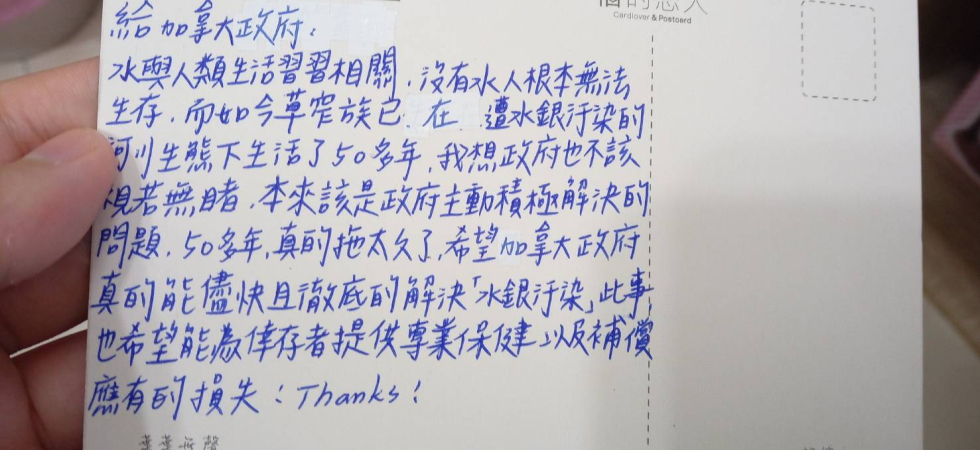 的戀人
Cardlover & Postcard
給加拿大政府:
水與人類生活習習相關,沒有水人根本無法
生存,而如今草窄族已在遭水銀汙染的
河川生態下生活了50多年,我想政府也不該
視若無睹,本來該是政府主動積極解決的
問題,50多年,真的拖太久了,希望加拿大政府
真的能儘快且徹底的解決「水銀汙染」此事
也希望能為倖存者提供專業保健以及補償
應有的損失!Thanks!